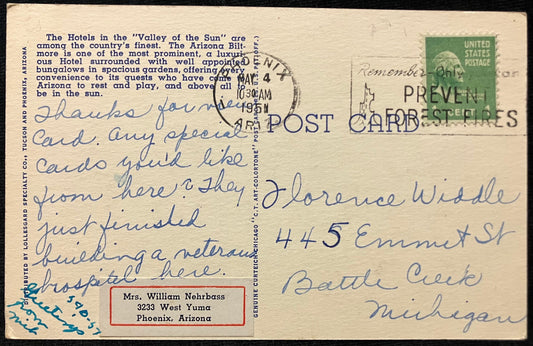 The Hotels in the "Valley of the Sun" are
among the country's finest. The Arizona Bilt-
more is one of the most prominent, a luxuri-
ous Hotel surrounded with well appointed
bungalows in spacious gardens, offering every
convenience to its guests who have come to
Arizona to rest and play, and above all
be in the sun.
Thanks for view
card. Any special
cards you'd like
from here? They
just finished
building a veterans
hospital here.
Greetings
from
Mrs. William Nehrbass
3233 West Yuma
Phoenix, Arizona
DISTRIBUTED BY LOLLESGARD SPECIALTY CO., TUCSON AND PHOENIX, ARIZONA
GENUINE CURTEICH-CHICAGO "C.T. ART-COLORTONE" POST CARD
PHOENIX
MAY 4
10 30 AM
1951
ARIZ.
Remember-Only you can
PREVENT
FOREST FIRES
UNITED
STATES
POSTAGE
POST CARD
Florence Widdle
445 Emmet St
Battle Creek
Michigan